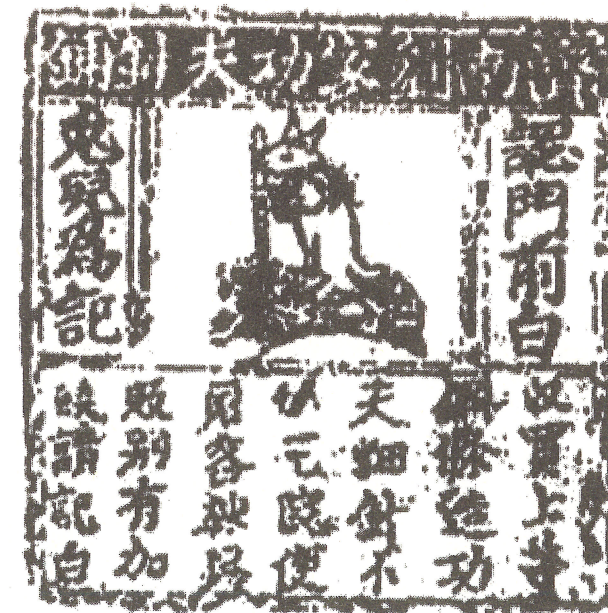 濟南劉家功夫針鋪
認門前白
兔兒爲記
收買上等
鋼條造功
夫細針不
使
用客
販別有加
饒請記白